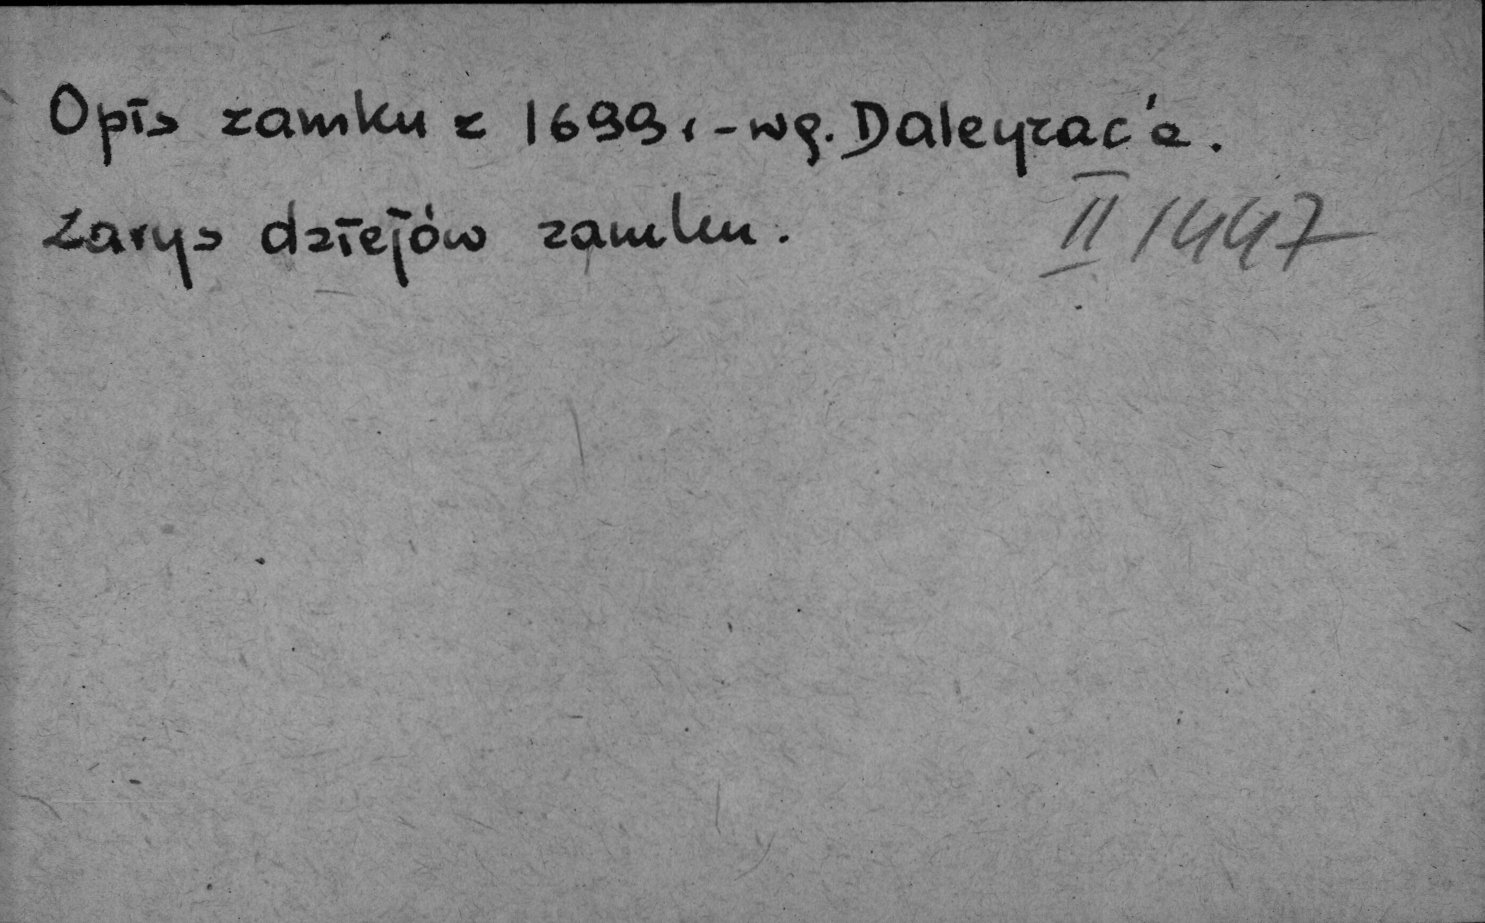 Opis zamku z 1699 r - wg. Daleyrac'a.
Zarys dziejów zamku.
II 1447